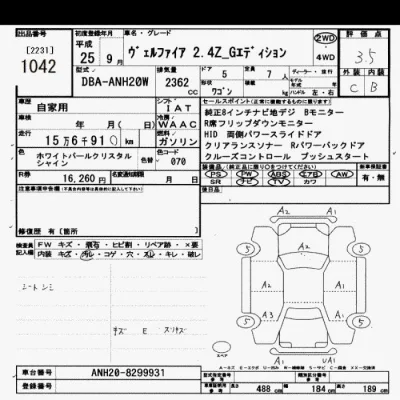 出品番号
[2231]
1042
初度登録年月
平成
25 年 9 月
車名・グレード
ヴェルファイア 2.4Z_Gエディション
2WD
4WD
評価点
3.5
型式
DBA-ANH20W
排気量
2362
CC
ドア
5
定員
7 人
形状
ワゴン
ディーラー・並行
ハンドル 左・右
外装
内装
C
B
車歴
自家用
シフト
IAT
冷房
WAAC
走行
15万6千91 0 km
燃料
ガソリン
色
ホワイトパールクリスタル
シャイン
色替
色コード
070
R券
16,260 円
名変期限
月 日
セールスポイント
純正8インチナビ地デジ Bモニター
R席フリップダウンモニター
HID 両側パワースライドドア
クリアランスソナー Rパワーバックドア
クルーズコントロール プッシュスタート
PS PW ABS エアB AW
SR ナビ TV カワ
新車保証書
有・無
注意事項申告欄
後日品
修復歴 有 [箇所
検査員
記入欄
FW キズ・飛石・ヒビ割・リペア跡・×要
内装 キズ・汚レ・コゲ・穴・スレ・キレ・破レ
シートシミ
キズ E スリキズ
A2
5
5
A1
A2
A1
A1
5
A3
A1
5
スペア
UA1
U1
車台番号
ANH20-8299931
型式指定番号
類別区分番号
参考
参考
参考
長さ 488 cm
幅 184 cm
高さ 189 cm